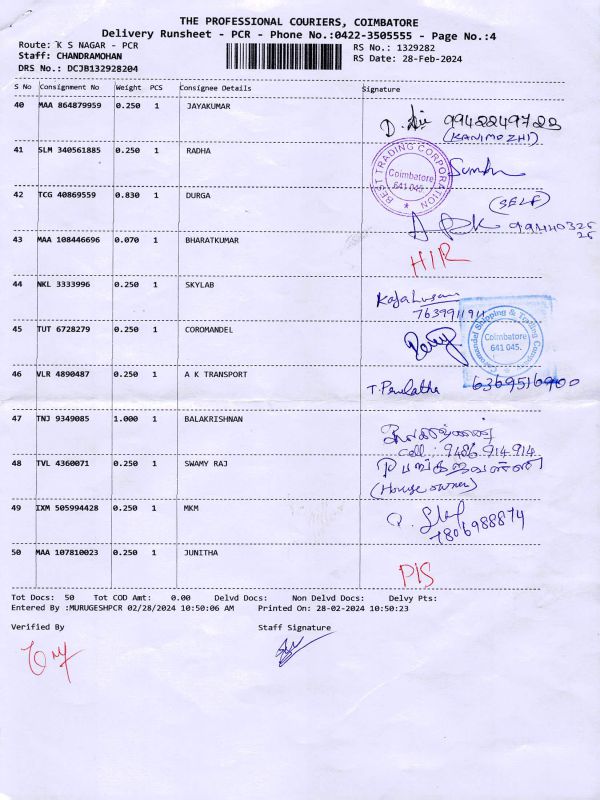 THE PROFESSIONAL COURIERS, COIMBATORE
Delivery Runsheet - PCR - Phone No.:0422-3505555 - Page No.:4
Route: K S NAGAR - PCR
RS No.: 1329282
Staff: CHANDRAMOHAN
RS Date: 28-Feb-2024
DRS No.: DCJB132928204
S No Consignment No Weight PCS Consignee Details Signature
40 MAA 864879959 0.250 1 JAYAKUMAR
(KANIMOZHI)
41 SLM 340561885 0.250 1 RADHA
BEST TRADING CORPORATION
Coimbatore
641 045.
42 TCG 40869559 0.830 1 DURGA
(SELF)
43 MAA 108446696 0.070 1 BHARATKUMAR
HIR
44 NKL 3333996 0.250 1 SKYLAB
7639911911
45 TUT 6728279 0.250 1 COROMANDEL
Coromandel Shipping & Trading Company
Coimbatore
641 045.
46 VLR 4890487 0.250 1 A K TRANSPORT
6369516900
47 TNJ 9349085 1.000 1 BALAKRISHNAN
Cell: 9486.914.914
48 TVL 4360071 0.250 1 SWAMY RAJ
(House owner)
49 IXM 505994428 0.250 1 MKM
7806988874
50 MAA 107810023 0.250 1 JUNITHA
PIS
Tot Docs: 50 Tot COD Amt: 0.00 Delvd Docs: Non Delvd Docs: Delvy Pts:
Entered By :MURUGESHPCR 02/28/2024 10:50:06 AM Printed On: 28-02-2024 10:50:23
Verified By Staff Signature